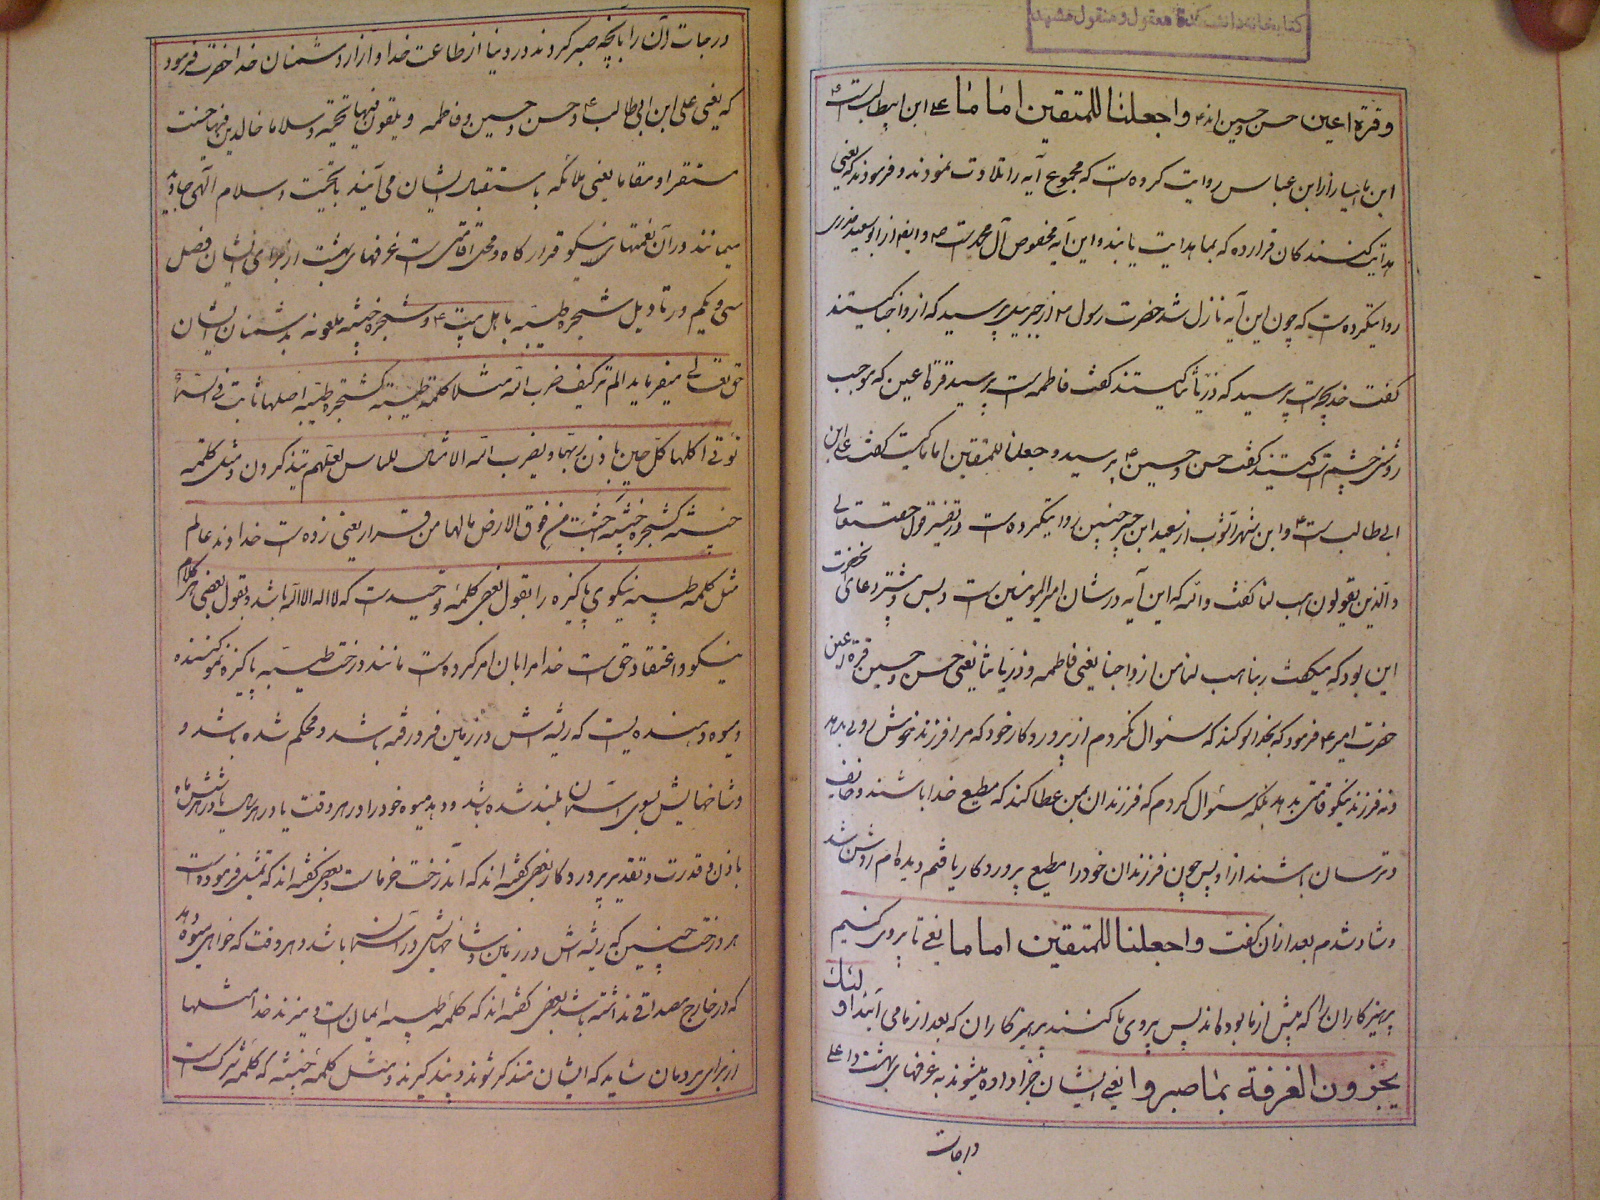 کتابخانه دانشکدهٔ معقول و منقول مشهد
و قرة اعین حسن و حسین اند ع واجعلنا للمتقین اماما علی ابن ابیطالب است ع
ابن ماهیار از ابن عباس روایت کرده است که مجموع آیه را تلاوت نمودند و فرمودند که یعنی
هدایت کنندگان قرار ده که بما هدایت یابند و این آیه مخصوص آل محمد است ص و ایضا از ابو سعید خدری
روایتکرده است که چون این آیه نازل شد حضرت رسول ص از جبرییل پرسید که ازواجنا کیستند
گفت خدیجه است پرسید که ذریاتنا کیستند گفت فاطمه است پرسید قرة اعین که موجب
روشنی چشم است کیستند گفت حسن و حسین ع پرسید واجعلنا للمتقین اماما کیست گفت علی ابن
ابی طالب است ع و ابن شهر آشوب از سعید ابن جبیر چنین روایتکرده است در تفسیر قول حقتعالی
والذین یقولون هب لنا گفت والله که این آیه در شان امیرالمومنین است و بس و بیشتر دعای انحضرت
این بود که میگفت ربنا هب لنا من ازواجنا یعنی فاطمه و ذریاتنا یعنی حسن و حسین قرة اعین
حضرت امیر ع فرمود که بخدا سوگند که سئوال نکردم از پروردگار خود که مرا فرزند خوش روی بدهد
و نه فرزند نیکو قامتی بدهد بلکه سئوال کردم که فرزندان بمن عطا کند که مطیع خدا باشند و خائف
و ترسان باشند از او پس چون فرزندان خود را مطیع پروردگار یافتم دیده ام روشن شد
و شاد شدم بعد ازان گفت واجعلنا للمتقین اماما یعنی تا پیروی کنیم
پرهیزکاران را که پیش از ما بوده اند پس پیروی ما کنند پرهیزکاران که بعد از ما می آیند اولئک
یجزون الغرفة بما صبروا یعنی ایشان جزا داده میشوند به غرفهای بهشت و اعلی
درجات
درجات آن را بآنچه صبر کردند در دنیا از طاعت خدا و آزار دشمنان خدا حضرت فرمود
که یعنی علی ابن ابی طالب ع و حسن و حسین و فاطمه و یلقون فیها تحیة و سلاما خالدین فیها حسنت
مستقرا و مقاما یعنی ملائکه باستقبال ایشان می آیند با تحیت و سلام الهی جاوید
میمانند در آن نعمتهای نیکو قرارگاه و محل اقامتی است غرفهای بهشت از برای ایشان فصل
سی و یکم در تاویل شجره طیبه باهل بیت ع و شجره خبیثه ملعونه بدشمنان ایشان
حق تعالی میفرماید الم تر کیف ضرب الله مثلا کلمة طیبة کشجرة طیبة اصلها ثابت فی السماء
تؤتی اکلها کل حین باذن ربها و یضرب الله الامثال للناس لعلهم یتذکرون و مثل کلمة
خبیثة کشجرة خبیثة اجتثت من فوق الارض ما لها من قرار یعنی زده است خداوند عالم
مثل کلمه طیبه نیکوی پاکیزه را بقول بعضی کلمهٔ توحیدست که لا اله الا الله باشد و بقول بعضی هر کلام
نیکو و اعتقاد حق است خدا مرا بان امر کرده است مانند درخت طیبه پاکیزه نمو کننده
و میوه دهنده ایست که ریشه اش در زمین فرو رفته باشد و محکم شده باشد و
و شاخهایش بسوی آسمان بلند شده باشد و دهد میوه خود را در هر وقت یا در هر سال یا در هر شش ماه
باذن و قدرت و تقدیر پروردگار بعضی گفته اند که این درخت خرماست و بعضی گفته اند که تمثیل فرموده است
هر درخت چنین که ریشه اش در زمین و شاخهایش در آسمان باشد و هر وقت که خواهی میوه دهد
که در خارج مصداقی نداشته باشد بعضی گفته اند که کلمه طیبه ایمان است و میزند خدا مثلها
از برای مردمان شاید که ایشان متذکر شوند و پند گیرند و مثل کلمه خبیثه که کلمه شرک است